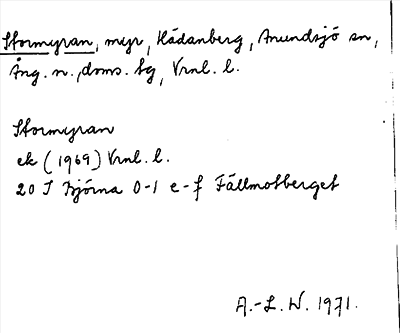 Stormyran, myr, Hädanberg, Anundsjö sn,
Ång. n., doms. tg, Vrnl. l.
Stormyran
ek (1969) Vrnl. l.
20 I Björna 0-1 e-f Fällmotberget
A.-L. W. 1971.